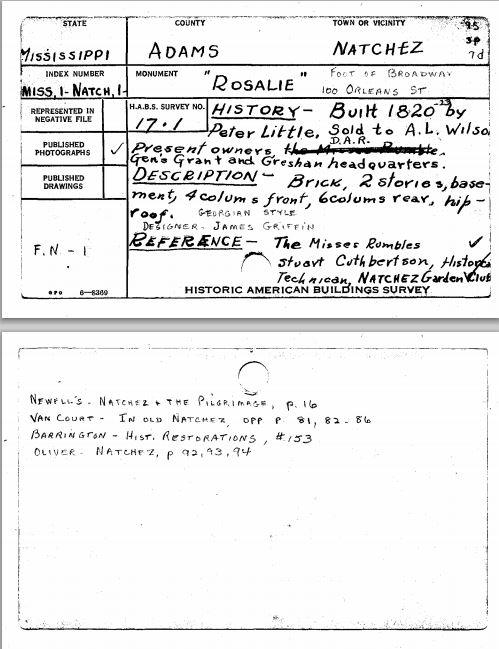 STATE COUNTY TOWN OR VICINITY
MISSISSIPPI ADAMS NATCHEZ
95
SP
7d
INDEX NUMBER MONUMENT
MISS, 1- NATCH, 1- "ROSALIE" FOOT OF BROADWAY
100 ORLEANS ST
REPRESENTED IN NEGATIVE FILE
H.A.B.S. SURVEY NO.
17·1
PUBLISHED PHOTOGRAPHS ✓
PUBLISHED DRAWINGS
F.N-1
HISTORY- Built 1820-23 by
Peter Little, Sold to A.L. Wilso
D.A.R.
Present owners, the Misses Rumble.
Gen's Grant and Greshan headquarters.
DESCRIPTION- Brick, 2 stories, base-
ment, 4 colums front, 6 colums rear, hip-
roof. GEORGIAN STYLE
DESIGNER- JAMES GRIFFIN
REFERENCE- The Misses Rumbles ✓
Stuart Cuthbertson, Historic
Technican, NATCHEZ Garden Club
GPO 6-8369
HISTORIC AMERICAN BUILDINGS SURVEY
NEWELL'S- NATCHEZ & THE PILGRIMAGE, p. 16
VAN COURT- IN OLD NATCHEZ, OPP P. 81, 82-86
BARRINGTON- HIST. RESTORATIONS, #153
OLIVER- NATCHEZ, p 92,93,94